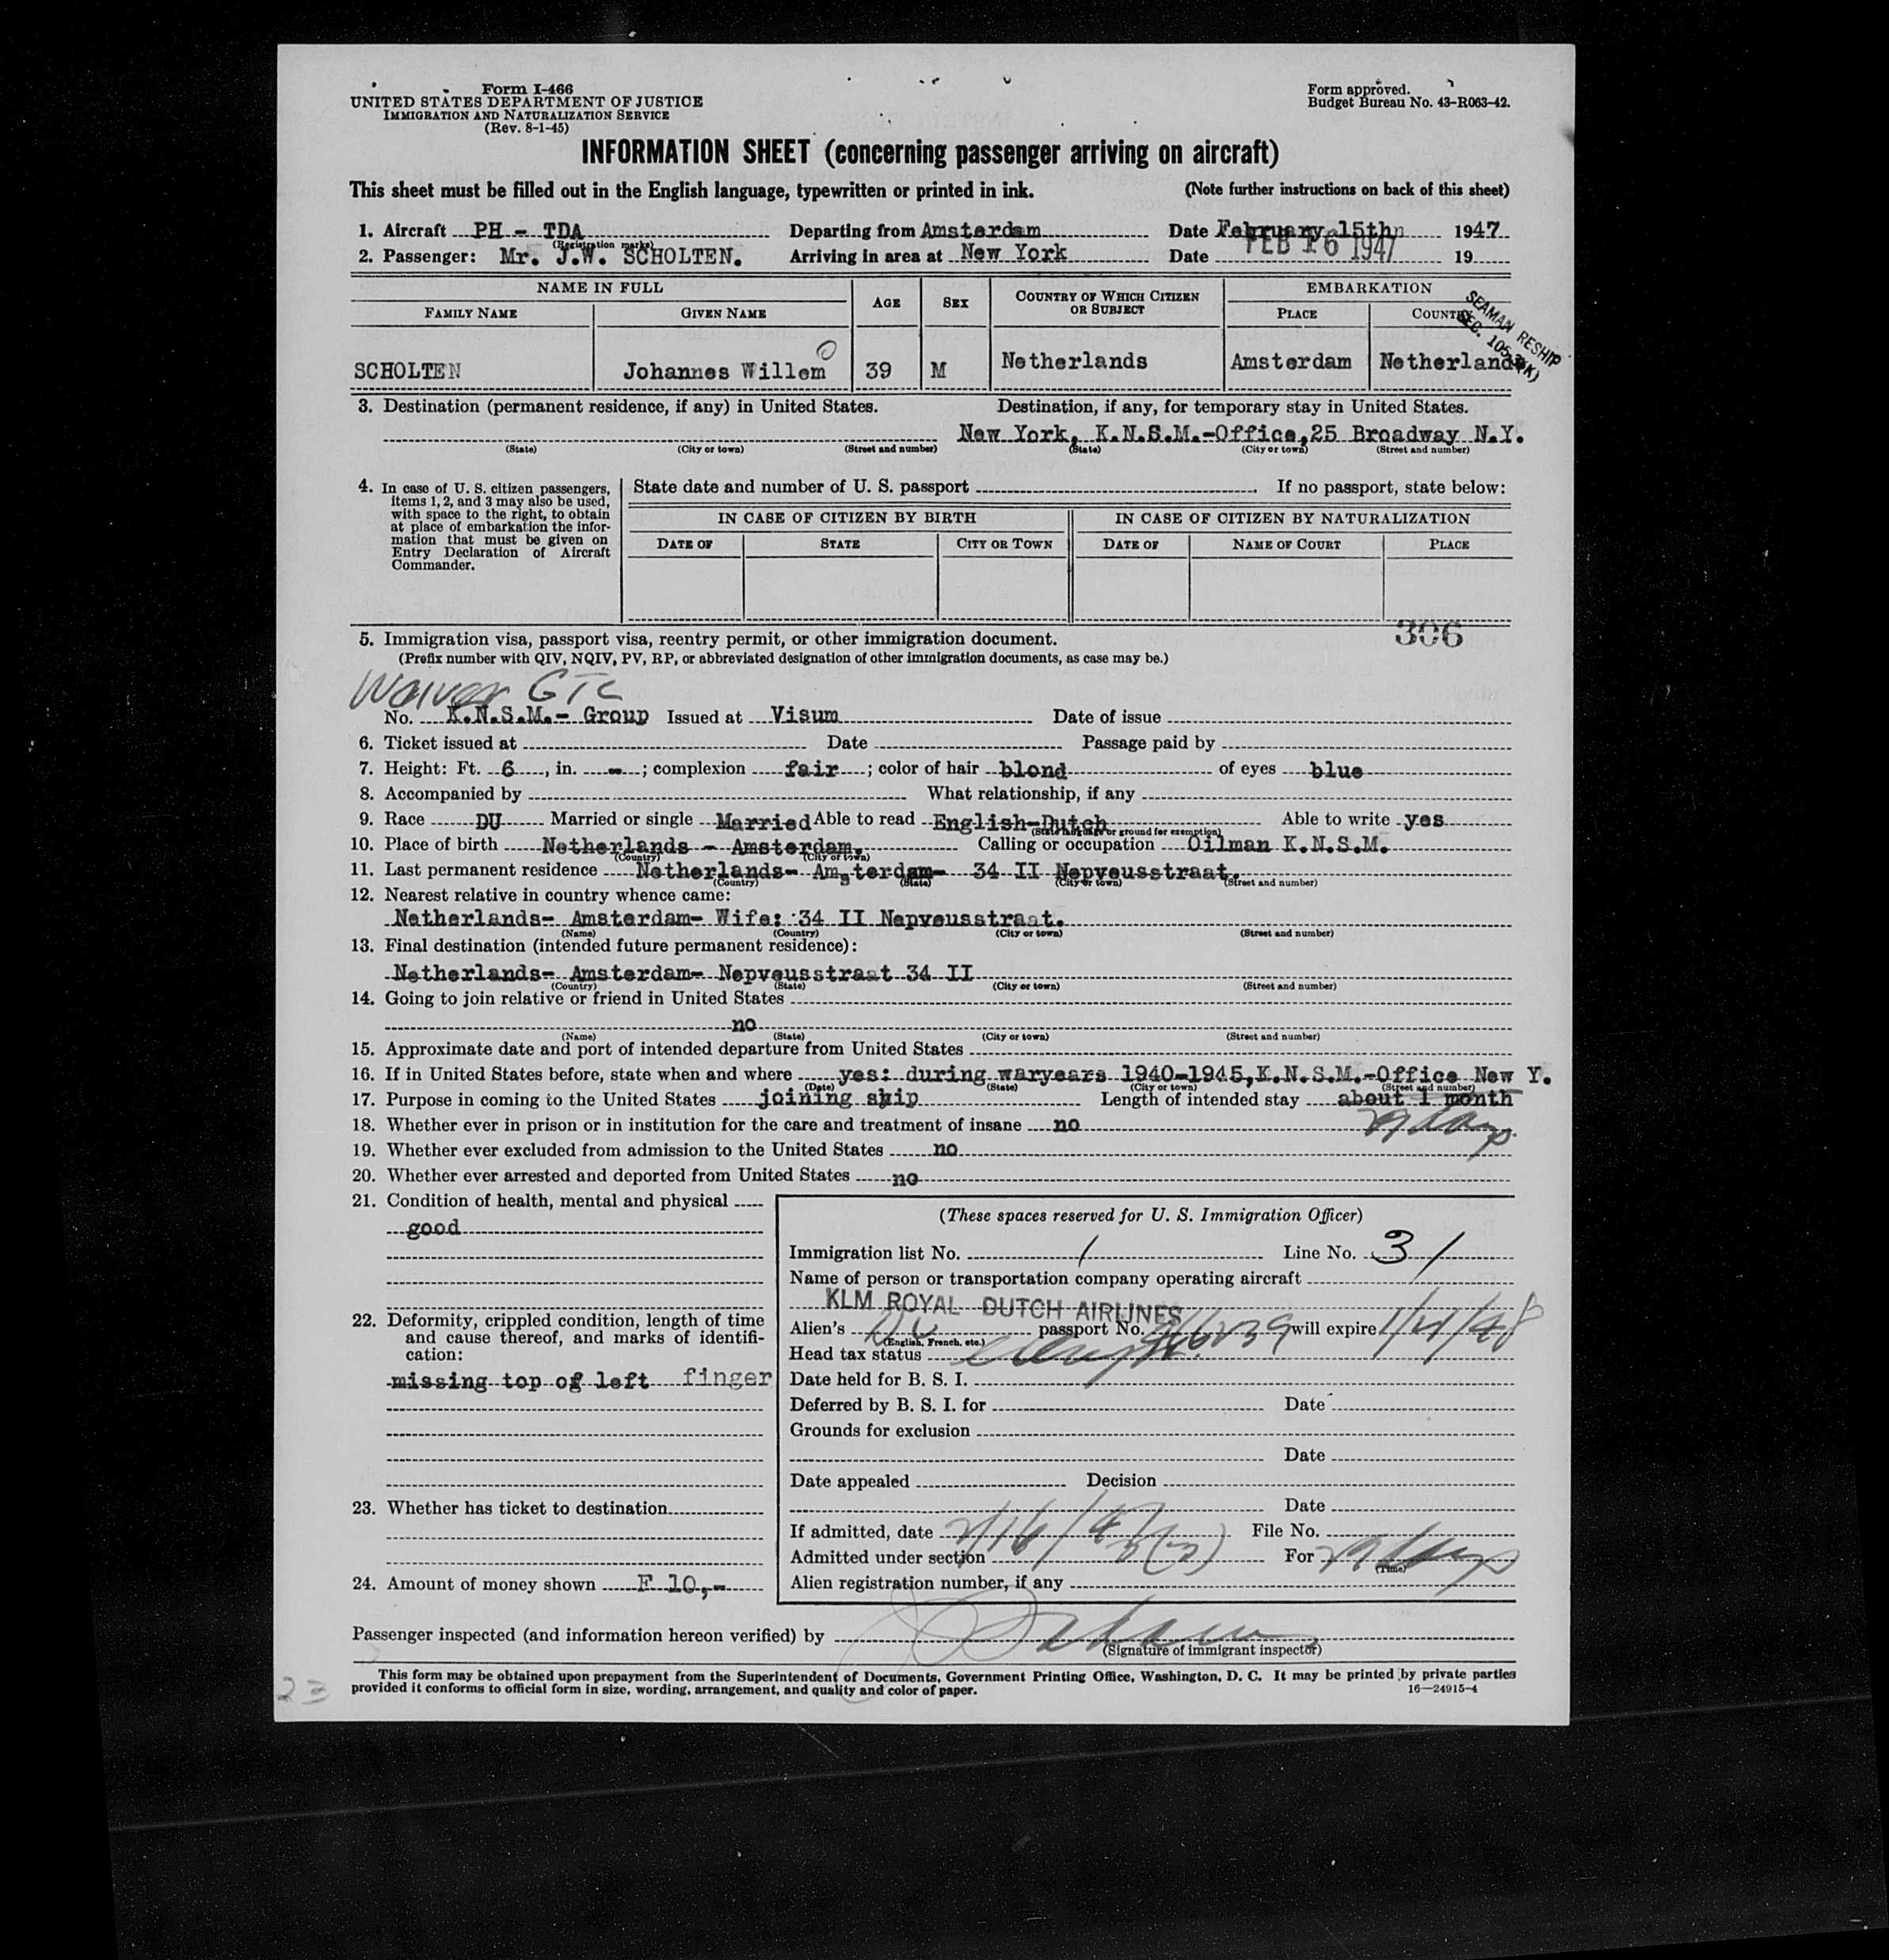 Form I-466
UNITED STATES DEPARTMENT OF JUSTICE
IMMIGRATION AND NATURALIZATION SERVICE
(Rev. 8-1-45)
Form approved.
Budget Bureau No. 43-R063-42.
INFORMATION SHEET (concerning passenger arriving on aircraft)
This sheet must be filled out in the English language, typewritten or printed in ink. (Note further instructions on back of this sheet)
1. Aircraft PH - TDA Departing from Amsterdam Date February 15th 1947
(Registration marks)
2. Passenger: Mr. J.W. SCHOLTEN. Arriving in area at New York Date FEB 16 1947 19
NAME IN FULL AGE SEX COUNTRY OF WHICH CITIZEN OR SUBJECT EMBARKATION
FAMILY NAME GIVEN NAME PLACE COUNTRY
SEAMAN RESHIP
SCHOLTEN Johannes Willem 39 M Netherlands Amsterdam Netherlands
3. Destination (permanent residence, if any) in United States. Destination, if any, for temporary stay in United States.
New York, K.N.S.M.-Office,25 Broadway N.Y.
(State) (City or town) (Street and number) (State) (City or town) (Street and number)
4. In case of U. S. citizen passengers, items 1, 2, and 3 may also be used, with space to the right, to obtain at place of embarkation the information that must be given on Entry Declaration of Aircraft Commander.
State date and number of U. S. passport If no passport, state below:
IN CASE OF CITIZEN BY BIRTH IN CASE OF CITIZEN BY NATURALIZATION
DATE OF STATE CITY OR TOWN DATE OF NAME OF COURT PLACE
306
5. Immigration visa, passport visa, reentry permit, or other immigration document.
(Prefix number with QIV, NQIV, PV, RP, or abbreviated designation of other immigration documents, as case may be.)
Waiver GTC
No. K.N.S.M.- Group Issued at Visum Date of issue
6. Ticket issued at Date Passage paid by
7. Height: Ft. 6, in. - ; complexion fair ; color of hair blond of eyes blue
8. Accompanied by What relationship, if any
9. Race DU Married or single Married Able to read English-Dutch Able to write yes
(State language or ground for exemption)
10. Place of birth Netherlands - Amsterdam. Calling or occupation Oilman K.N.S.M.
(Country) (City or town)
11. Last permanent residence Netherlands- Amsterdam- 34 II Nepveusstraat.
(Country) (State) (City or town) (Street and number)
12. Nearest relative in country whence came:
Netherlands- Amsterdam- Wife: 34 II Nepveusstraat.
(Name) (Country) (City or town) (Street and number)
13. Final destination (intended future permanent residence):
Netherlands- Amsterdam- Nepveusstraat 34 II
(Country) (State) (City or town) (Street and number)
14. Going to join relative or friend in United States
no
(Name) (State) (City or town) (Street and number)
15. Approximate date and port of intended departure from United States
16. If in United States before, state when and where yes: during waryears 1940-1945,K.N.S.M.-Office New Y.
(Date) (State) (City or town) (Street and number)
17. Purpose in coming to the United States joining ship Length of intended stay about 1 month
29 days
18. Whether ever in prison or in institution for the care and treatment of insane no
19. Whether ever excluded from admission to the United States no
20. Whether ever arrested and deported from United States no
21. Condition of health, mental and physical
good
22. Deformity, crippled condition, length of time and cause thereof, and marks of identification:
missing top of left finger
23. Whether has ticket to destination
24. Amount of money shown F 10,-
(These spaces reserved for U. S. Immigration Officer)
Immigration list No. 1 Line No. 31
Name of person or transportation company operating aircraft
KLM ROYAL DUTCH AIRLINES
Alien's Du passport No. will expire
(English, French, etc.)
Head tax status
Date held for B. S. I.
Deferred by B. S. I. for Date
Grounds for exclusion
Date
Date appealed Decision
Date
If admitted, date 2/16/47 File No.
Admitted under section 3(5) For 29 days
(Time)
Alien registration number, if any
Passenger inspected (and information hereon verified) by
(Signature of immigrant inspector)
This form may be obtained upon prepayment from the Superintendent of Documents, Government Printing Office, Washington, D. C. It may be printed by private parties
provided it conforms to official form in size, wording, arrangement, and quality and color of paper. 16—24915-4
23